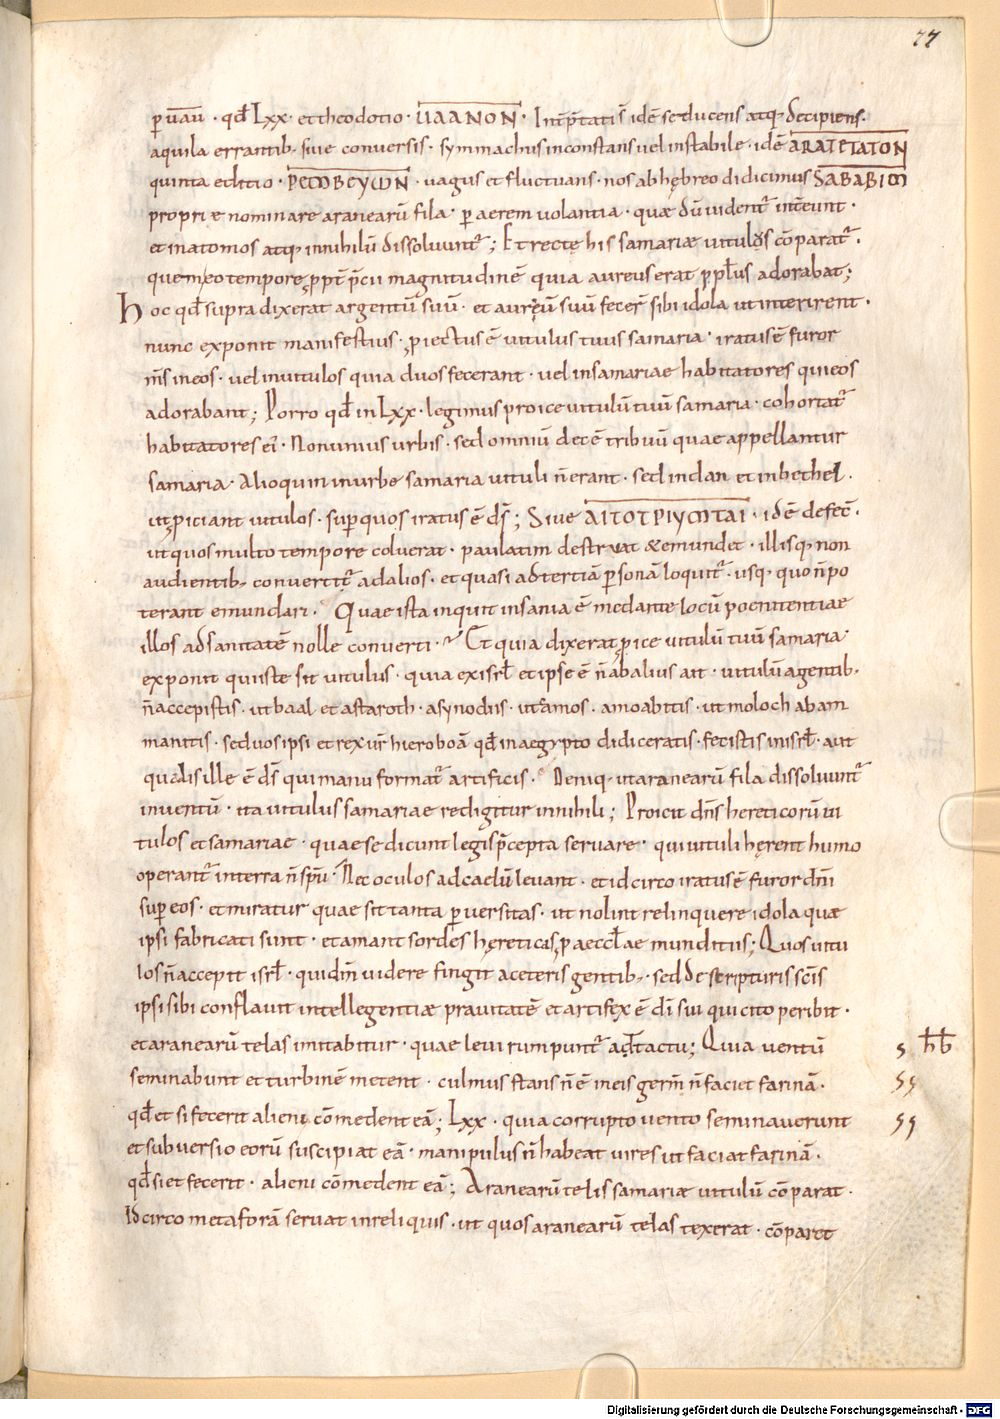 77
ꝑ uau̅ · qđ Lxx · et theodotio · UAANON · Int̅p̅tati s̅ idē seducens atq; decipiens.
aquila errantib; siue conversis · symmachus inconstans vel instabile · idē AKATETATON
quinta editio · PEMBEYωN · uagus et fluctuans · nos ab hębreo didicimus SABABIM
propriæ nominare aranearū fila · ꝑ aerem uolantia · quæ dū uident̅ int̅eunt ·
et in atomos atq; in nihilū dissoluunt̅; Et rectę his samariæ uitulos cōparat̅ ·
quem eo tempore ꝓpt̅ p̅cii magnitudinē quia aureus erat ꝑ pl̅us adorabat;
hoc qđ supra dixerat argentū suū · et auręū suū fecer̅ sibi idola ut interirent ·
nunc exponit manifestius · ꝓiectus ē uitulus tuus samaria · iratus ē furor
m̅s in eos · uel in uitulos quia duos fecerant · uel in samariae habitatores qui eos
adorabant; Porro qđ in Lxx · legimus proice uitulū tuū samaria · cohortat̅
habitatores ei̅ · Non unius urbis · sed omniū decē tribuū quae appellantur
samaria · Alioquin in urbe samaria uituli n̅ erant · sed in dan et in bethel ·
ut ꝓiciant uitulos · suꝑ quos iratus ē ds̅; Siue AITOTPIYCΩTAI · idē defec̅ ·
ut quos multo tempore coluerat · paulatim destruat & emundet · illisq; non
audientib; convertit̅ ad alios · et quasi ad tertiā ꝑsonā loquit̅ · usq; quo n̅ po
terant emundari · Quae ista inquit insania ē me dante locū poenitentiae
illos ad sanitatē nolle converti · Et quia dixerat ꝓice uitulū tuū samaria ·
exponit quis iste sit uitulus · quia ex isrl̅ et ipse ē n̅ ab alius ait · uitulū a gentib;
n̅ accepistis · ut baal et astaroth · a synodiis · ut chamos · a moabitis · ut moloch ab am
manitis · sed uos ipsi et rex ur̅ hieroboā qđ in aegypto didiceratis · fecistis in isrl̅ · aut
qualis ille ē ds̅ qui manu format̅ artificis · Deniq; ut aranearū fila dissoluunt̅
in ventū · ita uitulus samariae redigitur in nihili; Proicit dn̅s hereticorū ui
tulos et samariae · quae se dicunt legis p̅cepta servare · qui uituli hęrent humo
operant̅ in terra n̅ sp̅u · Nec oculos ad caelū levant · et idcirco iratus ē furor dn̅i
suꝑ eos · et miratur quae sit tanta ꝑversitas · ut nolint relinquere idola quæ
ipsi fabricati sunt · et amant sordes hęreticas p̅ aeccl̅ae munditiis; Quos uitu
los n̅ accepit isrl̅ · qui dm̅ uidere fingit a ceteris gentib; · sed de scripturis sc̅is
ipsi sibi conflavit intellegentiæ pravitatē et artifex ē di̅ sui qui cito peribit ·
et aranearū telas imitabitur · quae levi rumpunt̅ ad tactu; Quia ventū
seminabunt et turbinē metent · culmus stans n̅ ē in eis germ̅ n̅ faciet farinā ·
qđ et si fecerit alieni cōmedent eā; Lxx · quia corrupto vento seminaverunt
et subversio eorū suscipiat eā · manipulus n̅ habeat vires ut faciat farinā ·
qđ si et fecerit · alieni cōmedent eā; Aranearū telis samariæ uitulū cōparat ·
Idcirco metaforā servat in reliquis · ut quos aranearū telas texerat · cōparet
Digitalisierung gefördert durch die Deutsche Forschungsgemeinschaft - DFG